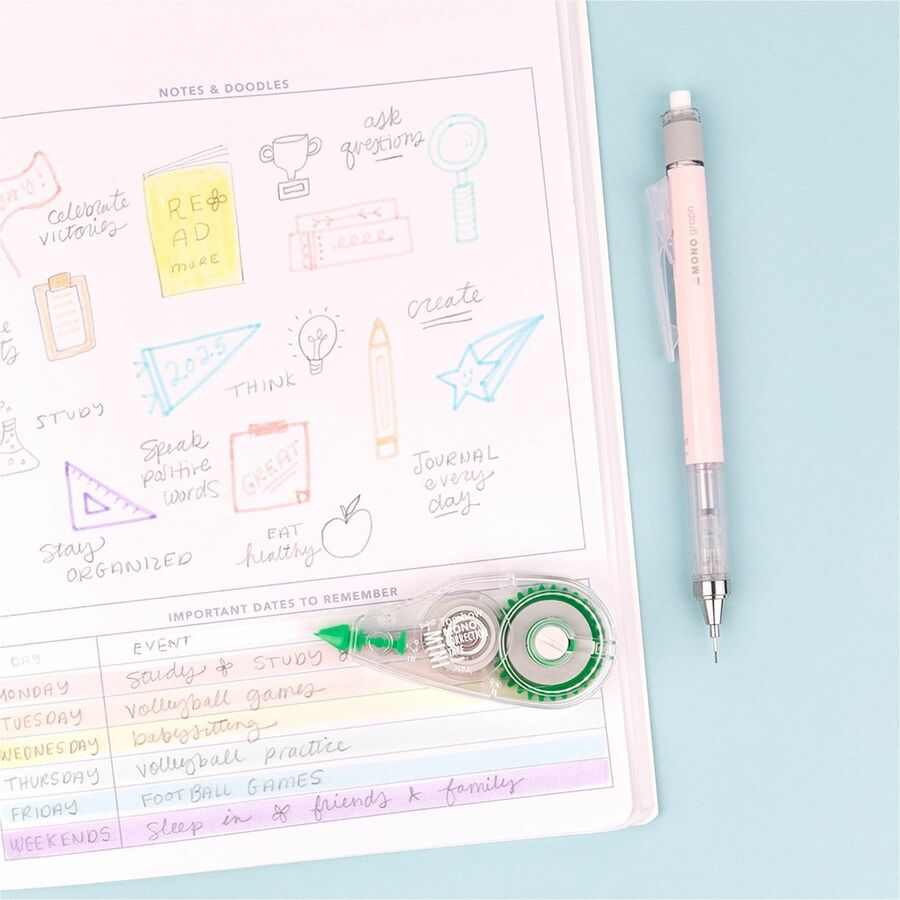 NOTES & DOODLES
ask
questions
celebrate
victories
RE
AD
MORE
create
2025
THINK
STUDY
Speak
positive
words
GREAT
JOURNAL
every
day
EAT
healthy
Stay
ORGANIZED
IMPORTANT DATES TO REMEMBER
DAY EVENT
MONDAY Study & STUDY
TUESDAY Volleyball games
WEDNESDAY babysitting
THURSDAY Volleyball practice
FRIDAY FOOTBALL GAMES
WEEKENDS Sleep in & friends & family
Tombow
MONO
CORRECTION
TAPE
MINI
MONO graph